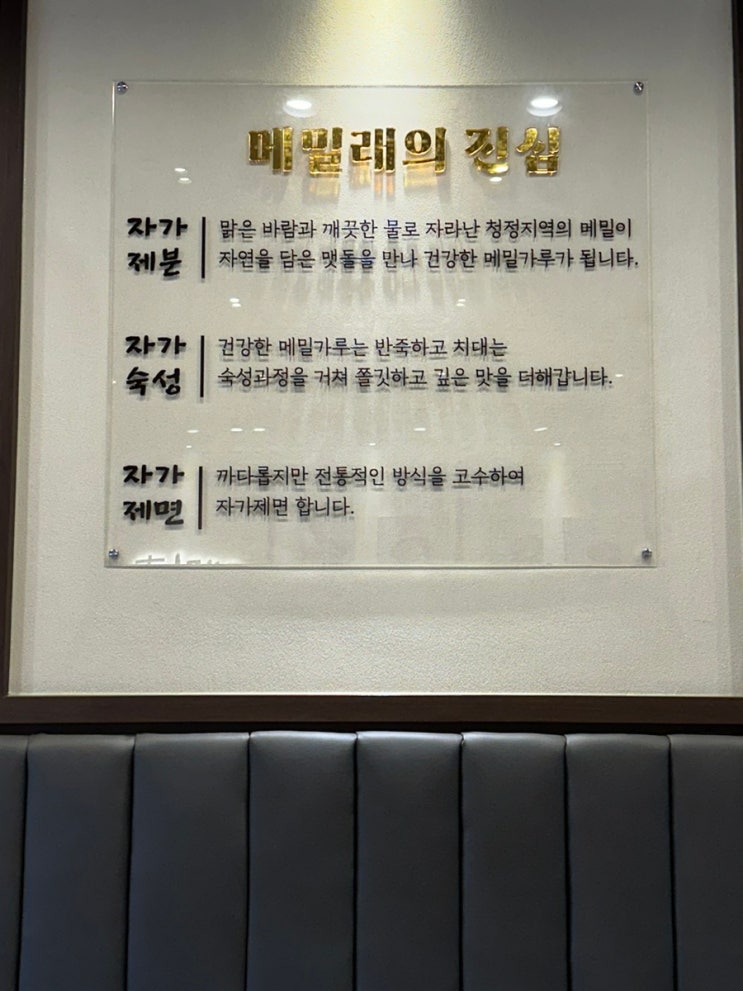 메밀래의 진심
자가
제분
맑은 바람과 깨끗한 물로 자라난 청정지역의 메밀이
자연을 담은 맷돌을 만나 건강한 메밀가루가 됩니다.
자가
숙성
건강한 메밀가루는 반죽하고 치대는
숙성과정을 거쳐 쫄깃하고 깊은 맛을 더해갑니다.
자가
제면
까다롭지만 전통적인 방식을 고수하여
자가제면 합니다.